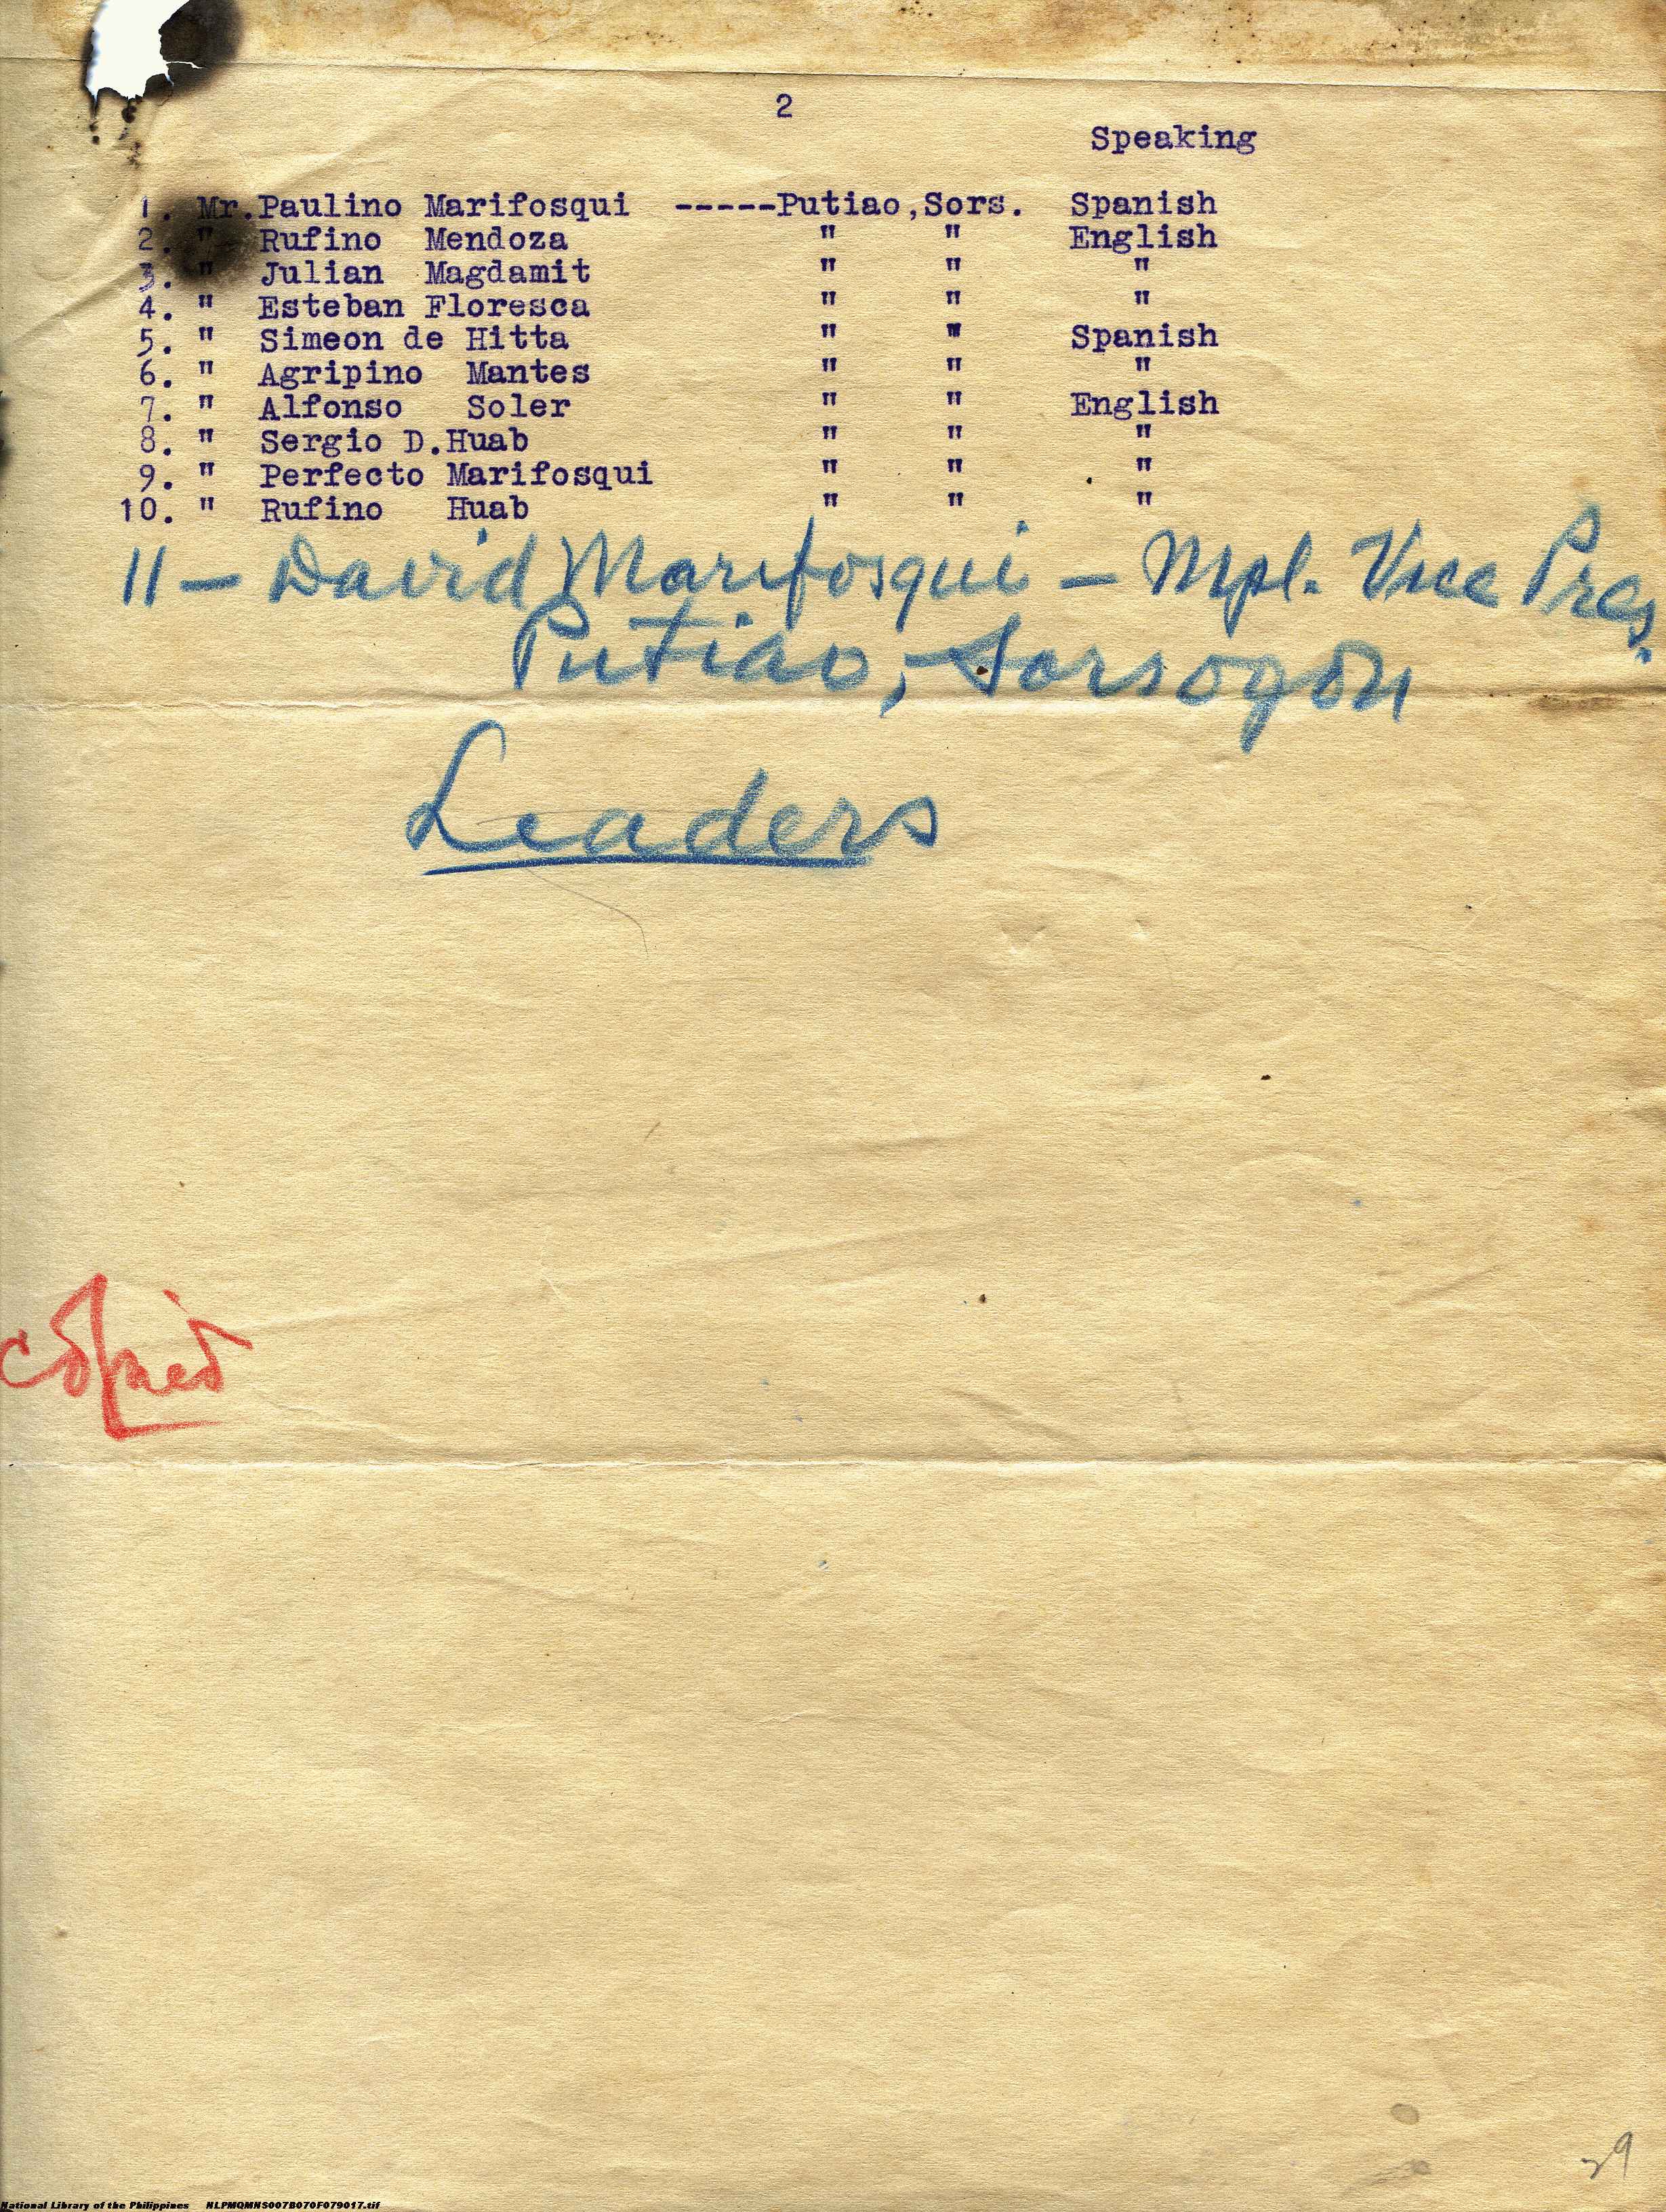 2
Speaking
1. Mr. Paulino Marifosqui -----Putiao, Sors. Spanish
2. " Rufino Mendoza " " English
3. " Julian Magdamit " " "
4. " Esteban Floresca " " "
5. " Simeon de Hitta " " Spanish
6. " Agripino Mantes " " "
7. " Alfonso Soler " " English
8. " Sergio D. Huab " " "
9. " Perfecto Marifosqui " " "
10. " Rufino Huab " " "
11 - David Marifosqui - Mpl. Vice Pres.
Putiao, Sorsogon
Leaders
Copied
29
National Library of the Philippines NLPMQMNS007B070F079017.tif